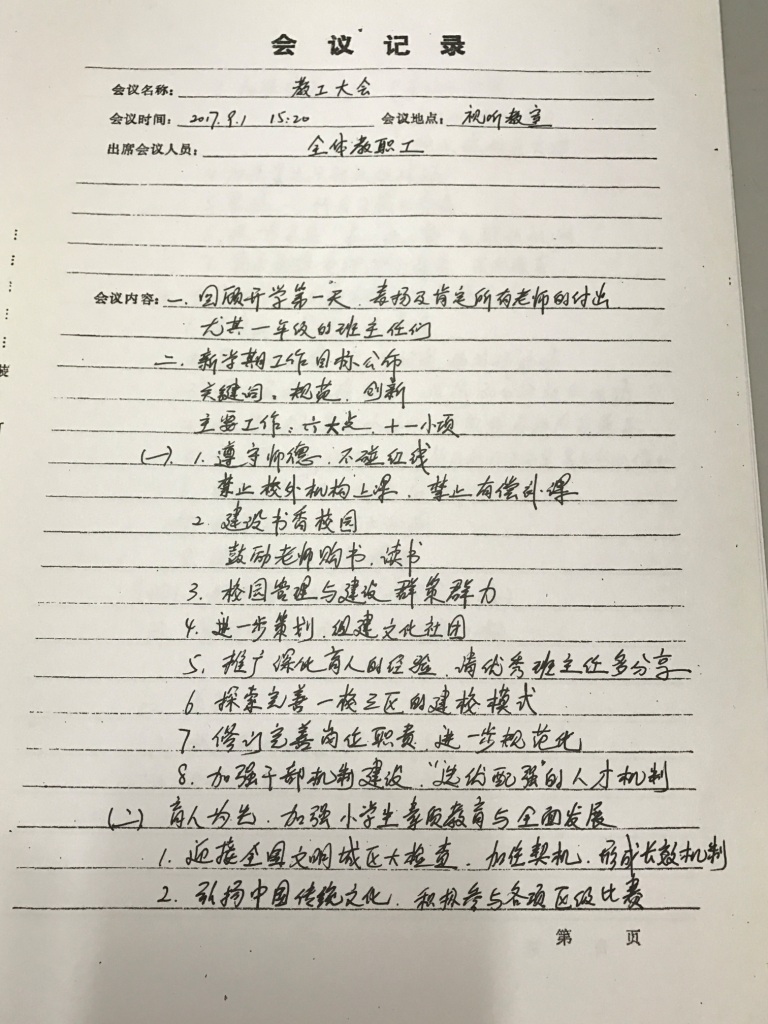 会议记录
会议名称： 教工大会
会议时间： 2017.9.1 15:20 会议地点： 视听教室
出席会议人员： 全体教职工
会议内容：一.回顾开学第一天.表扬及肯定所有老师的付出
尤其一年级的班主任们
二.新学期工作目标公布
关键词：规范.创新
主要工作：六大点.十一小项
(一).1.遵守师德.不碰红线
禁止校外机构上课.禁止有偿补课
2.建设书香校园
鼓励老师购书.读书
3.校园管理与建设群策群力
4.进一步策划.组建文化社团
5.推广深化育人的经验.请优秀班主任多分享
6 探索完善一校三区的建校模式
7.修订完善岗位职责.进一步规范化
8.加强干部机制建设.“选优配强”的人才机制
(二)育人为先.加强小学生素质教育与全面发展
1.迎接全国文明城区大检查. 契机.形成长效机制
2.弘扬中国传统文化.积极参与各项区级比赛
第 页